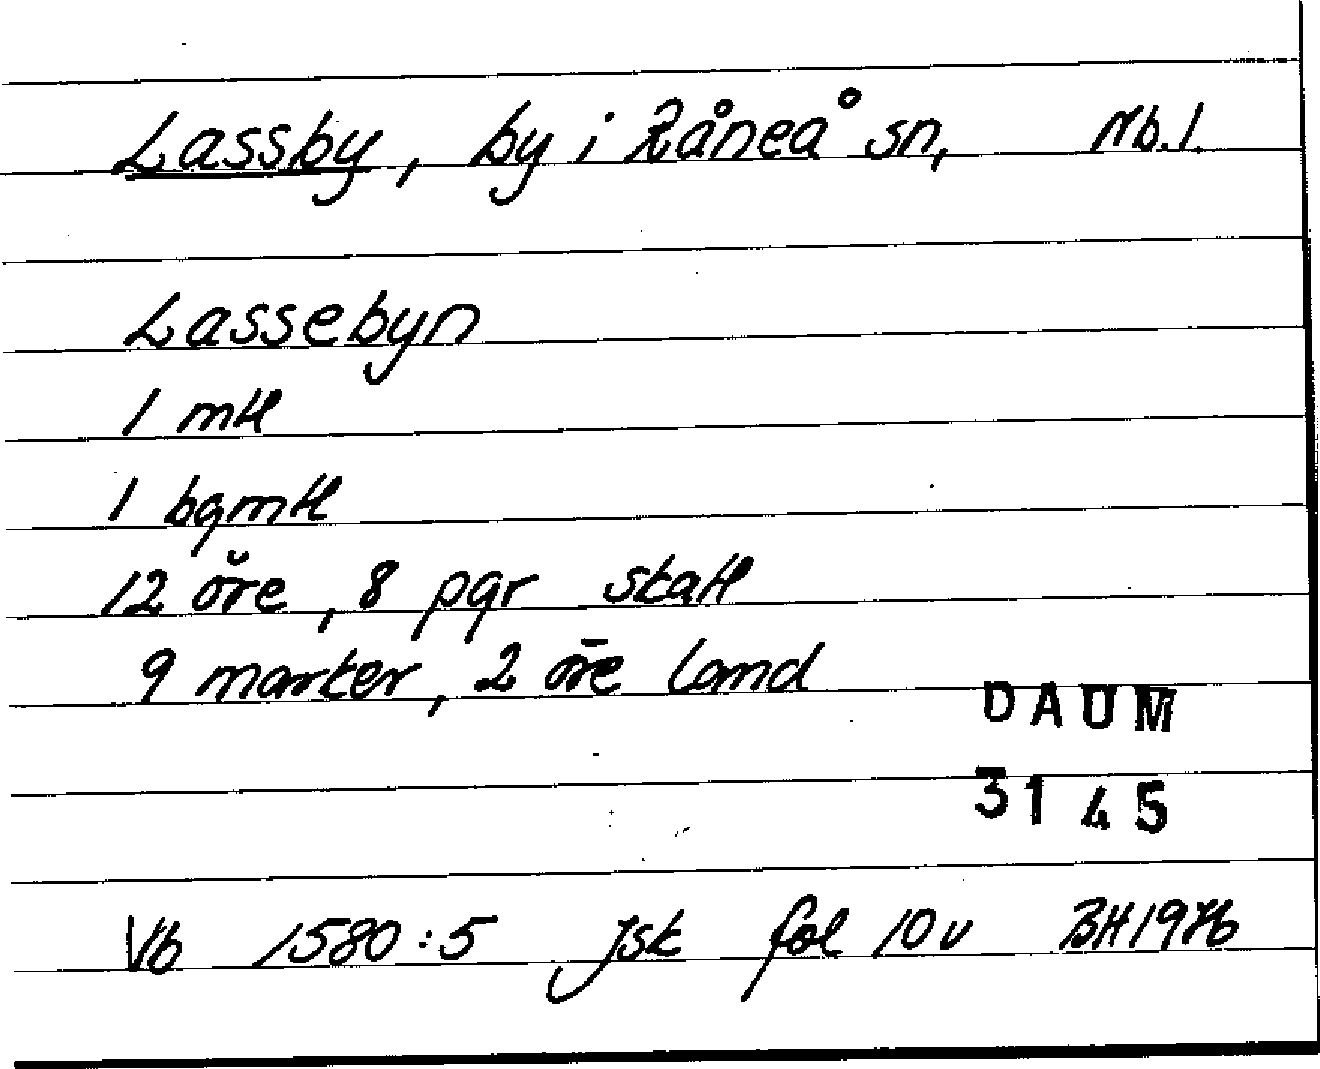 Lassby, by i Råneå sn, Nb.l.
Lassebyn
1 mtl
1 bgmtl
12 öre, 8 pgr skatt
9 marker, 2 öre land
DAUM
3145
Vb 1580:5 Jsk fol 10v BH1976